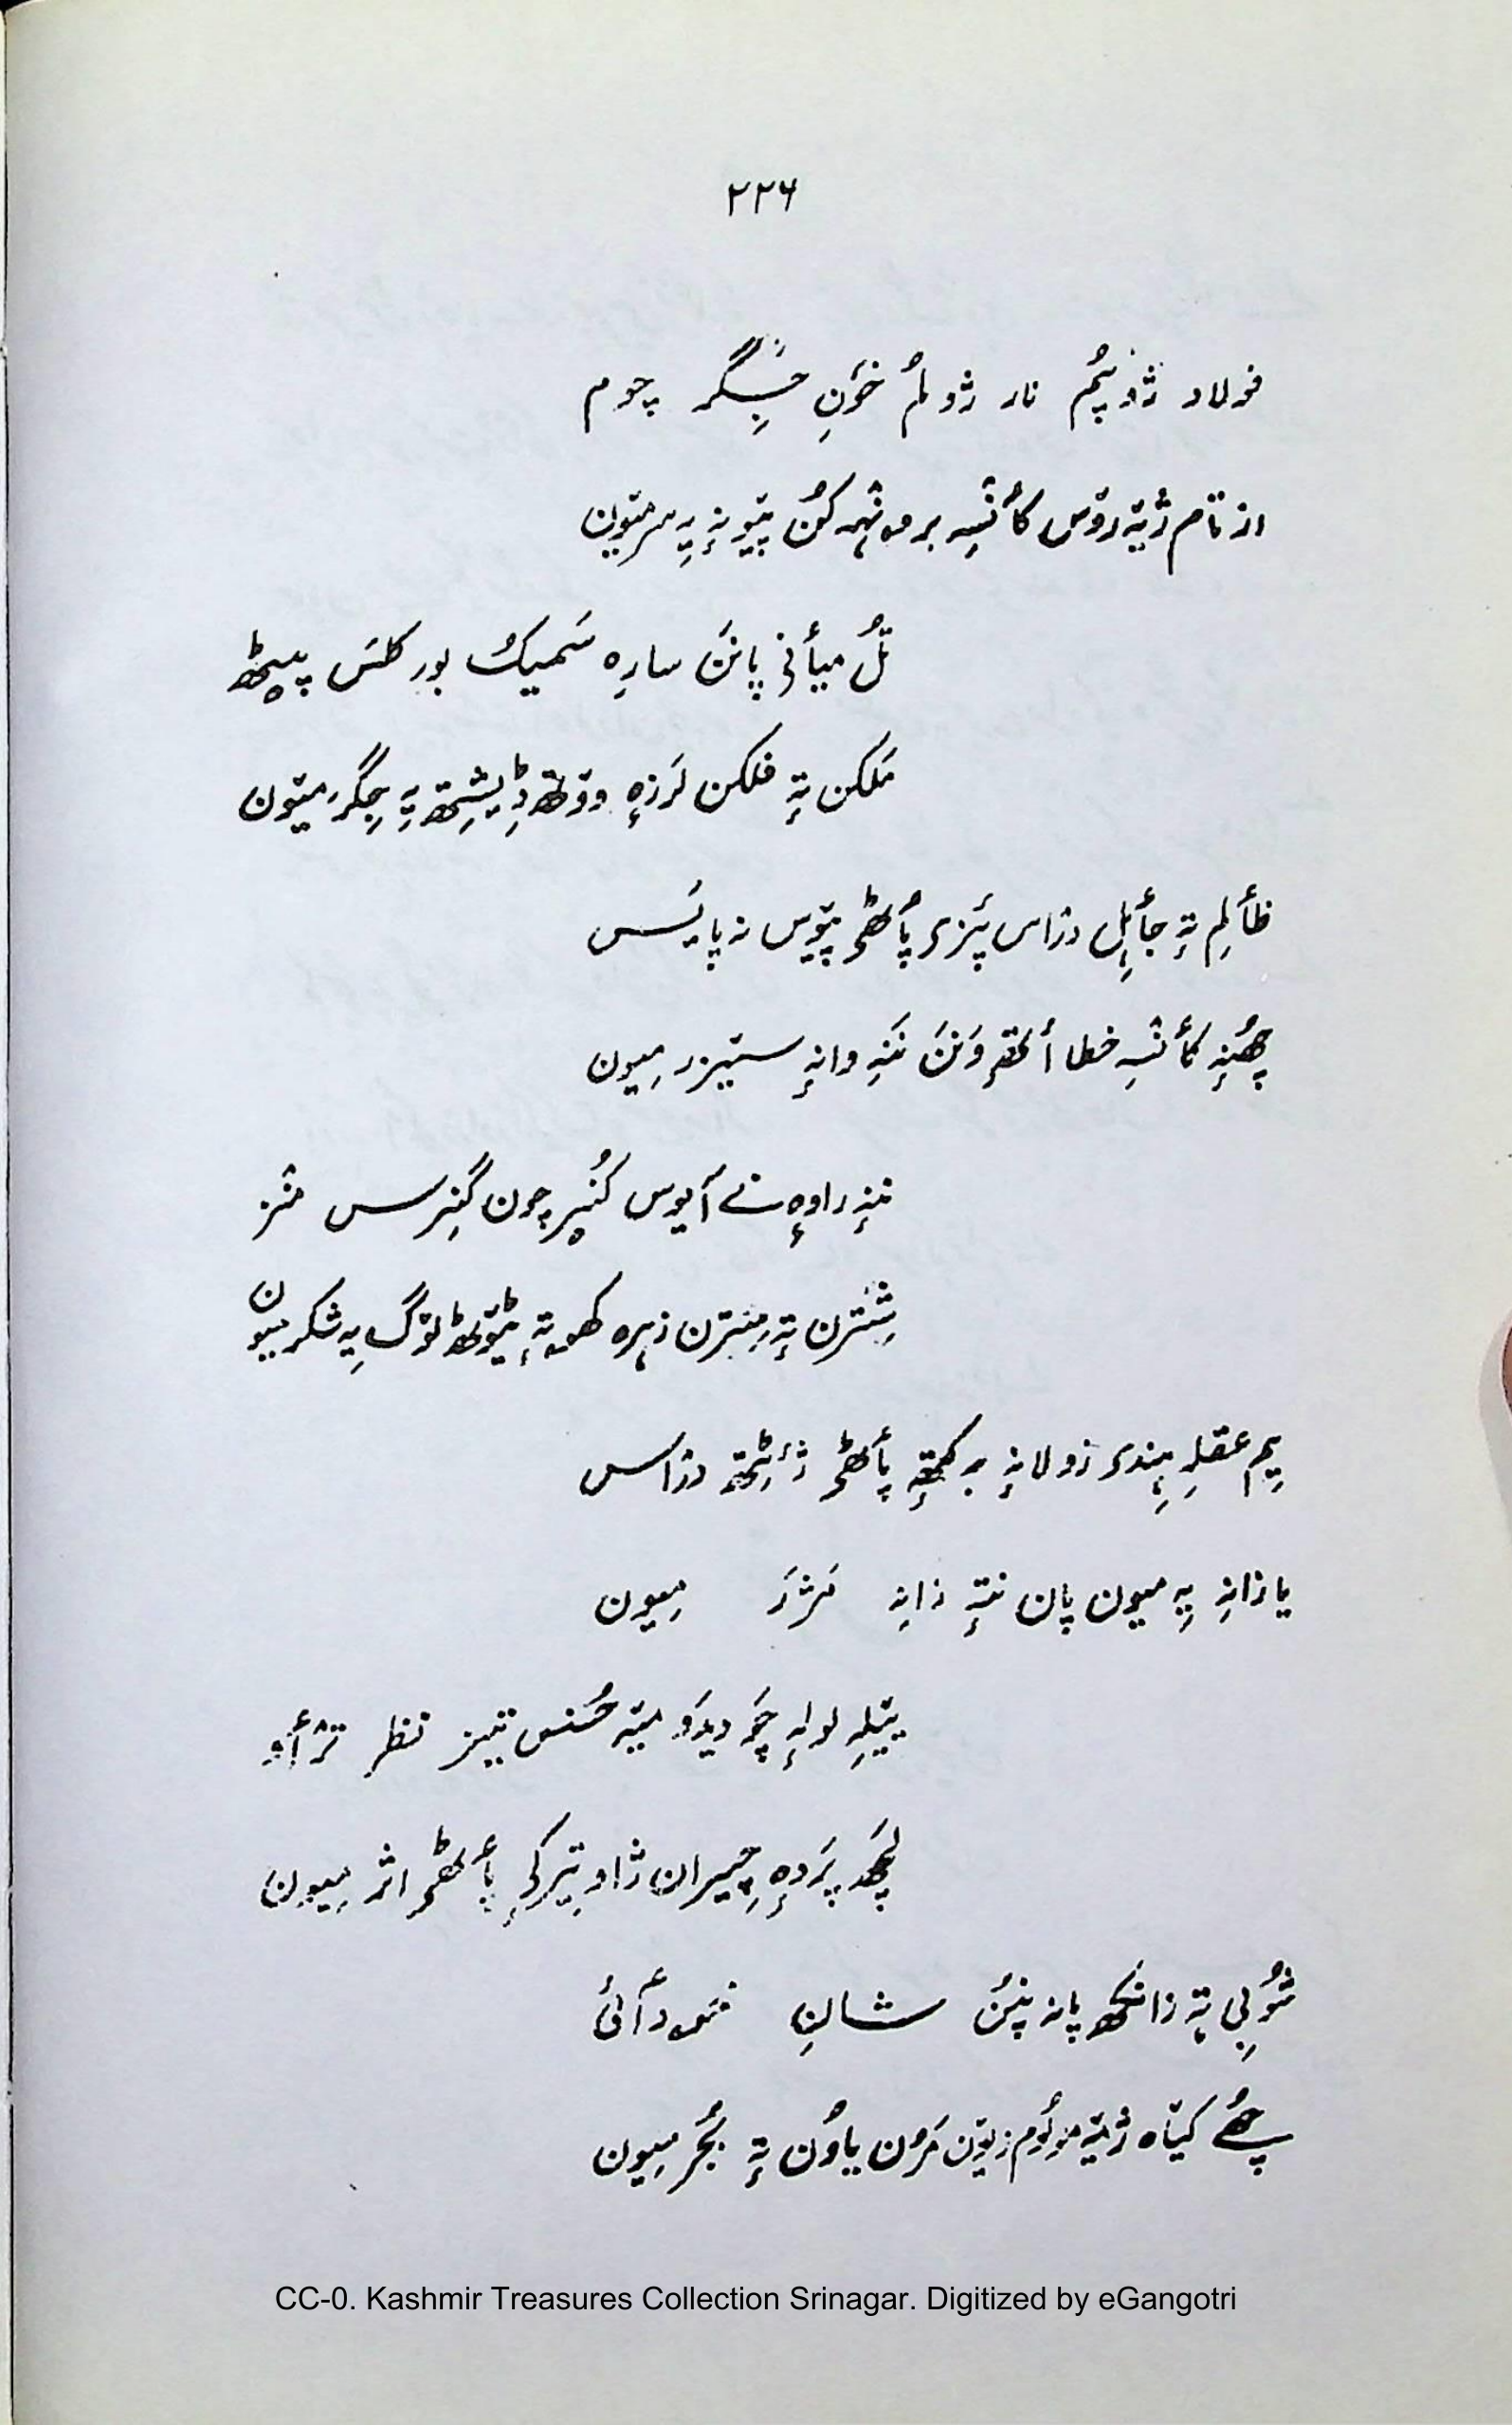 ۲۲۶
فولاد ژوٚپُم نار ژوٚلُم خوٗنِ جِگر چوم
از تام ژےٚ روٚس کأنٛسہِ برونٛہہ کُن پیوٚو نہٕ یہِ سر میوٚن
تُل میأنۍ پانَن سارِہ سَمیُک بور کلَس پیٚٹھ
مَلکن تہٕ فلکن لَرزہٕ ووٚتھ ڈیٖشِتھ یہِ جِگر میوٚن
ظألِم تہٕ جأہِل دراس پَزۍ پأٹھۍ پیوٚس نہ پایَس
چھُنہٕ کأنٛسہِ خطا أتھۍ وَنَن ننہِ وانہٕ سیزر میون
ننہٕ راوہٕ نے آیوس کُنیر چون گنِرس منٛز
شِتٔرن تہٕ مِترن زہرہ کھوتہٕ ٹیوٚٹھ لوٚگ یہِ شکر میون
یِم عقلہِ ہِندۍ زولانہٕ بہ کَمہِ پأٹھۍ ژٔٹِتھ دراس
یا زانہِ یہِ میون پان نتہٕ زانہِ مَژر میون
ییٚلہِ لولہٕ چَھ دیدَو میٚہ حُسنس تیز نظر ترأو
لَچھ پَردہٕ چیٖران ژاو تیٖرکۍ پأٹھۍ اثر میون
شوٗبی تہٕ زانکھ پانہ پنُن شانِ خودأئی
چھُے کیاہ ژےٚ مولوٗم زیوٚن مَرُن یاوُن تہٕ بُجَر میون
CC-0. Kashmir Treasures Collection Srinagar. Digitized by eGangotri